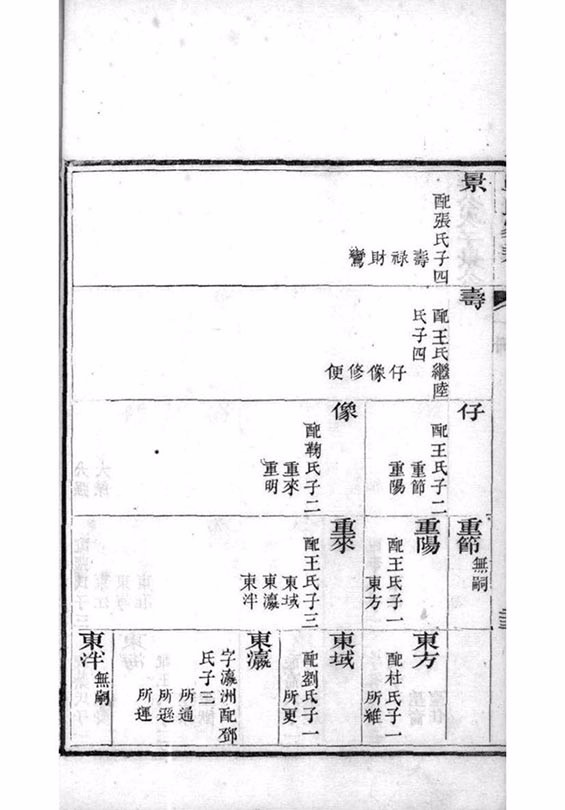 景
配張氏子四
壽
祿
財
鸞
壽
配王氏繼陸
氏子四
仔
像
修
便
仔
配王氏子二
重節
重陽
像
配鞠氏子二
重來
重明
重節
無嗣
重陽
配王氏子一
東方
重來
配王氏子三
東域
東瀛
東泮
東方
配杜氏子一
所維
東域
配劉氏子一
所更
東瀛
字瀛洲配鄧
氏子三
所通
所遜
所運
東泮
無嗣